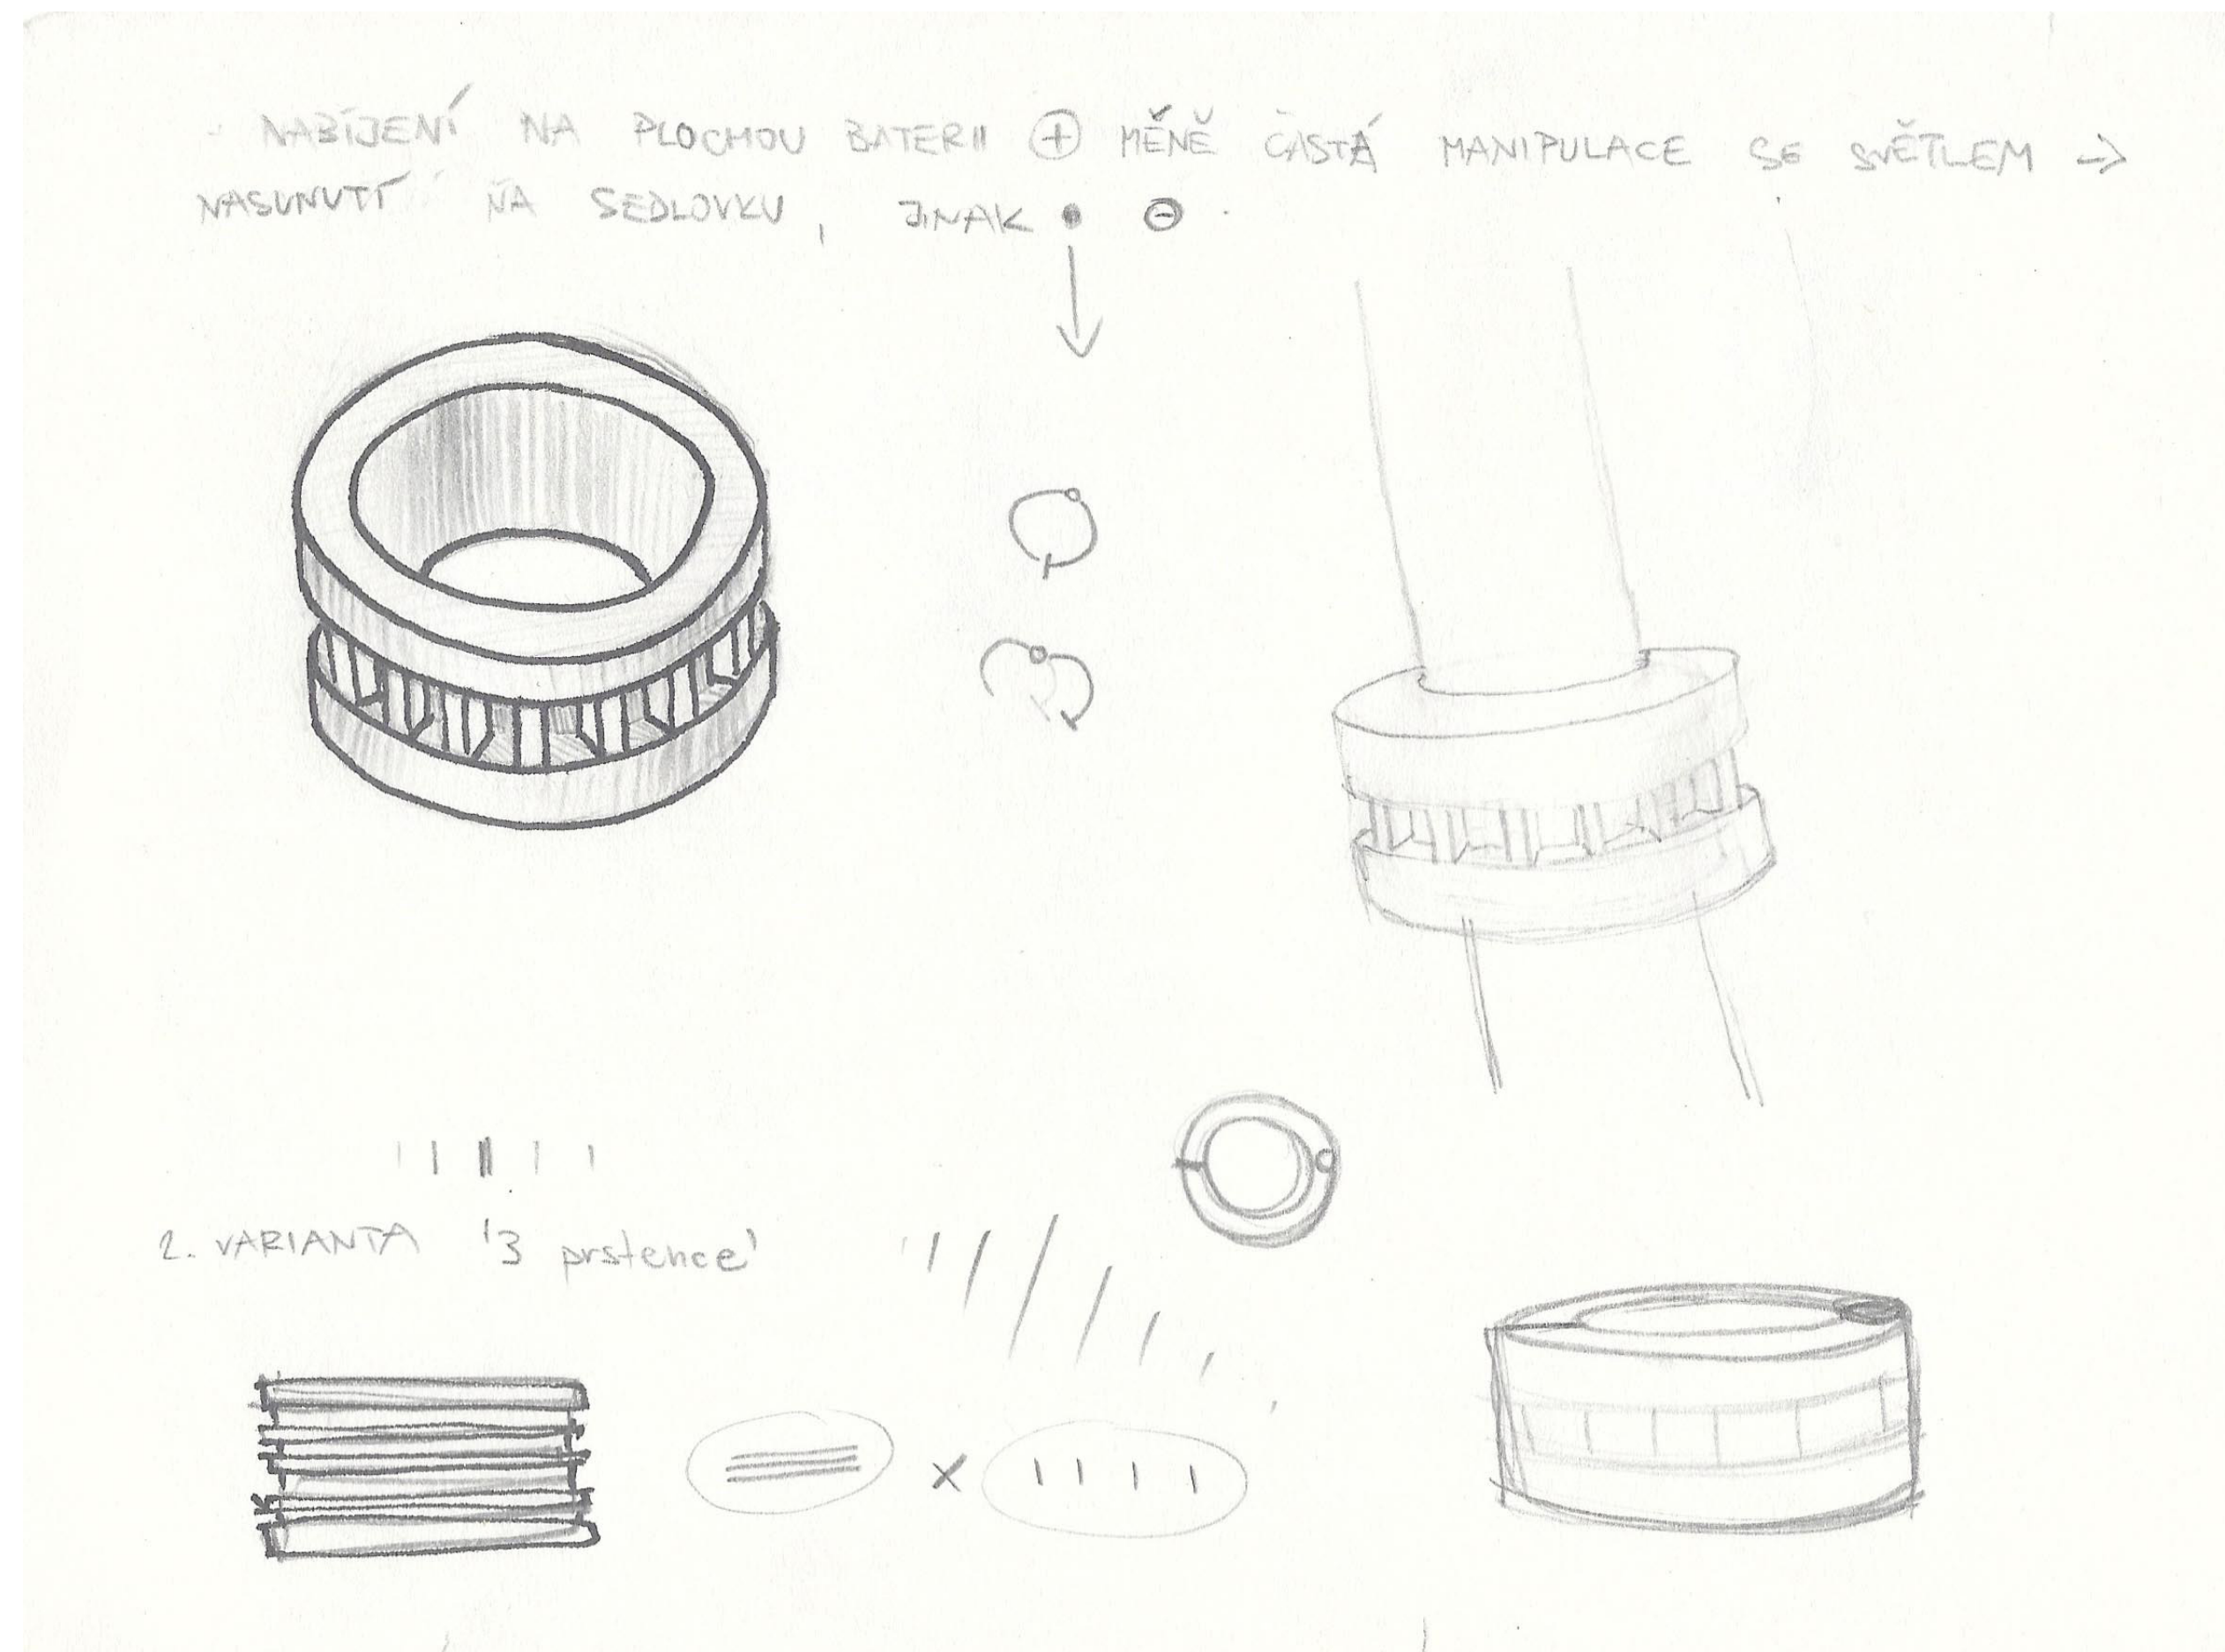 NABÍJENÍ NA PLOCHOU BATERII ⊕ MÉNĚ ČASTÁ MANIPULACE SE SVĚTLEM →
NASUNUTÍ NA SEDLOVKU, JINAK • ⊖
2. VARIANTA '3 prstence'
x